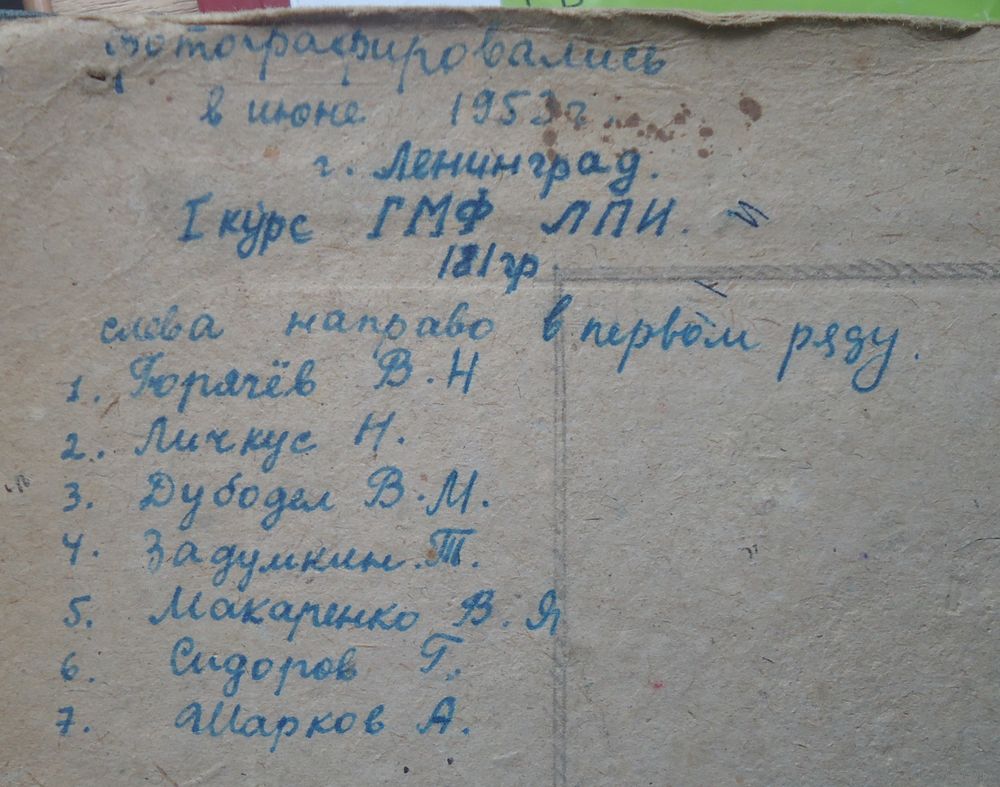 Фотографировались
в июне 1953 г.
г. Ленинград.
I курс ГМФ ЛПИ.
181 гр.
слева направо в первом ряду.
1. Горячёв В.Н
2. Личкус Н.
3. Дубодел В.М.
4. Задумкин. Т.
5. Макаренко В.Я
6. Сидоров Г.
7. Шарков А.